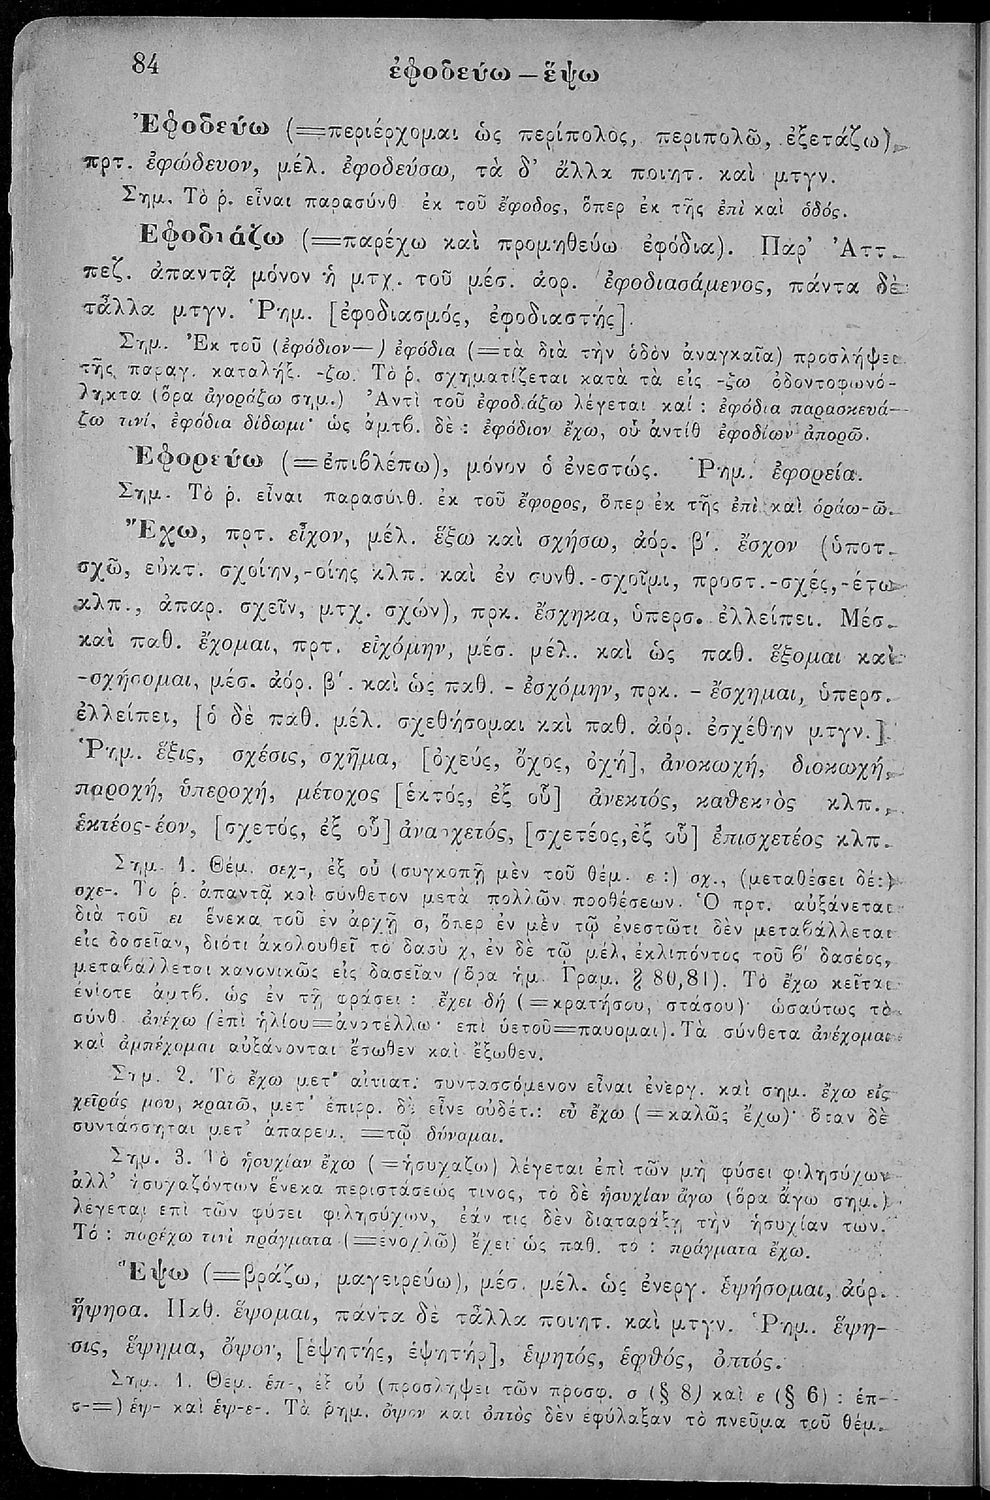 84
ἐφοδεύω — ἕψω
Ἐφοδεύω (=περιέρχομαι ὡς περίπολος, περιπολῶ, ἐξετάζω),
πρτ. ἐφώδευον, μέλ. ἐφοδεύσω, τὰ δ' ἄλλα ποιητ. καὶ μτγν.
Σημ. Τὸ ῥ. εἶναι παρασύνθ ἐκ τοῦ ἔφοδος, ὅπερ ἐκ τῆς ἐπὶ καὶ ὁδός.
Ἐφοδιάζω (=παρέχω καὶ προμηθεύω ἐφόδια). Παρ' Ἀττ.
πεζ. ἀπαντᾷ μόνον ἡ μτχ. τοῦ μέσ. ἀορ. ἐφοδιασάμενος, πάντα δὲ
τἆλλα μτγν. Ῥημ. [ἐφοδιασμός, ἐφοδιαστής].
Σημ. Ἐκ τοῦ (ἐφόδιον—) ἐφόδια (=τὰ διὰ τὴν ὁδὸν ἀναγκαῖα) προσλήψει
τῆς παραγ. καταλήξ. -ζω. Τὸ ῥ. σχηματίζεται κατὰ τὰ εἰς -ζω ὀδοντοφωνό-
ληκτα (ὅρα ἀγοράζω σημ.) Ἀντὶ τοῦ ἐφοδιάζω λέγεται καί : ἐφόδια παρασκευά-
ζω τινί, ἐφόδια δίδωμι· ὡς ἀμτβ. δὲ : ἐφόδιον ἔχω, οὗ ἀντίθ ἐφοδίων ἀπορῶ.
Ἐφορεύω (=ἐπιβλέπω), μόνον ὁ ἐνεστώς. Ῥημ. ἐφορεία.
Σημ. Τὸ ῥ. εἶναι παρασύνθ. ἐκ τοῦ ἔφορος, ὅπερ ἐκ τῆς ἐπὶ καὶ ὁράω-ῶ.
Ἔχω, πρτ. εἶχον, μέλ. ἕξω καὶ σχήσω, ἀόρ. β΄. ἔσχον (ὑποτ.
σχῶ, εὐκτ. σχοίην,-οίης κλπ. καὶ ἐν συνθ.-σχοῖμι, προστ.-σχές,-έτω
κλπ., ἀπαρ. σχεῖν, μτχ. σχών), πρκ. ἔσχηκα, ὑπερσ. ἐλλείπει. Μέσ.
καὶ παθ. ἔχομαι, πρτ. εἰχόμην, μέσ. μέλ. καὶ ὡς παθ. ἕξομαι καὶ
-σχήσομαι, μέσ. ἀόρ. β΄. καὶ ὡς παθ. - ἐσχόμην, πρκ. - ἔσχημαι, ὑπερσ.
ἐλλείπει, [ὁ δὲ παθ. μέλ. σχεθήσομαι καὶ παθ. ἀόρ. ἐσχέθην μτγν.].
Ῥημ. ἕξις, σχέσις, σχῆμα, [ὀχεύς, ὄχος, ὀχή], ἀνοκωχή, διοκωχή,
παροχή, ὑπεροχή, μέτοχος [ἑκτός, ἐξ οὗ] ἀνεκτός, καθεκτὸς κλπ.,
ἑκτέος-έον, [σχετός, ἐξ οὗ] ἀνασχετός, [σχετέος,ἐξ οὗ] ἐπισχετέος κλπ.
Σημ. 1. Θέμ. σεχ-, ἐξ οὗ (συγκοπῇ μὲν τοῦ θέμ. ε :) σχ., (μεταθέσει δέ:)
σχε-. Τὸ ῥ. ἀπαντᾷ καὶ σύνθετον μετὰ πολλῶν προθέσεων. Ὁ πρτ. αὐξάνεται
διὰ τοῦ ει ἕνεκα τοῦ ἐν ἀρχῇ σ, ὅπερ ἐν μὲν τῷ ἐνεστῶτι δὲν μεταβάλλεται
εἰς δασεῖαν, διότι ἀκολουθεῖ τὸ δασὺ χ, ἐν δὲ τῷ μέλ. ἐκλιπόντος τοῦ β΄ δασέος,
μεταβάλλεται κανονικῶς εἰς δασεῖαν (ὅρα ἡμ. Γραμ. § 80,81). Τὸ ἔχω κεῖται
ἐνίοτε ἀμτβ. ὡς ἐν τῇ φράσει : ἔχει δή (=κρατήσου, στάσου)· ὡσαύτως τὸ
σύνθ. ἀνέχω (ἐπὶ ἡλίου=ἀνατέλλω· ἐπὶ ὑετοῦ=παύομαι). Τὰ σύνθετα ἀνέχομαι
καὶ ἀμπέχομαι αὐξάνονται ἔσωθεν καὶ ἔξωθεν.
Σημ. 2. Τὸ ἔχω μετ' αἰτιατ. συντασσόμενον εἶναι ἐνεργ. καὶ σημ. ἔχω εἰς
χεῖράς μου, κρατῶ, μετ' ἐπιρρ. δὲ εἶνε οὐδέτ.: εὖ ἔχω (=καλῶς ἔχω)· ὅταν δὲ
συντάσσηται μετ' ἀπαρεμ. =τῷ δύναμαι.
Σημ. 3. Τὸ ἡσυχίαν ἔχω (=ἡσυχάζω) λέγεται ἐπὶ τῶν μὴ φύσει φιλησύχων
ἀλλ' ἡσυχαζόντων ἕνεκα περιστάσεώς τινος, τὸ δὲ ἡσυχίαν ἄγω (ὅρα ἄγω σημ.)
λέγεται ἐπὶ τῶν φύσει φιλησύχων, ἐάν τις δὲν διαταράξῃ τὴν ἡσυχίαν των.
Τό : παρέχω τινὶ πράγματα (=ἐνοχλῶ) ἔχει ὡς παθ. τὸ : πράγματα ἔχω.
Ἕψω (=βράζω, μαγειρεύω), μέσ. μέλ. ὡς ἐνεργ. ἑψήσομαι, ἀόρ.
ἥψησα. Παθ. ἕψομαι, πάντα δὲ τἆλλα ποιητ. καὶ μτγν. Ῥημ. ἕψη-
σις, ἕψημα, ὄψον, [ἑψητής, ἑψητήρ], ἑψητός, ἑφθός, ὀπτός.
Σημ. 1. Θέμ. ἑπ-, ἐξ οὗ (προσλήψει τῶν προσφ. σ (§ 8) καὶ ε (§ 6) : ἑπ-
σ-=) ἑψ- καὶ ἑψ-ε-. Τὰ ῥημ. ὄψον καὶ ὀπτὸς δὲν ἐφύλαξαν τὸ πνεῦμα τοῦ θέμ.